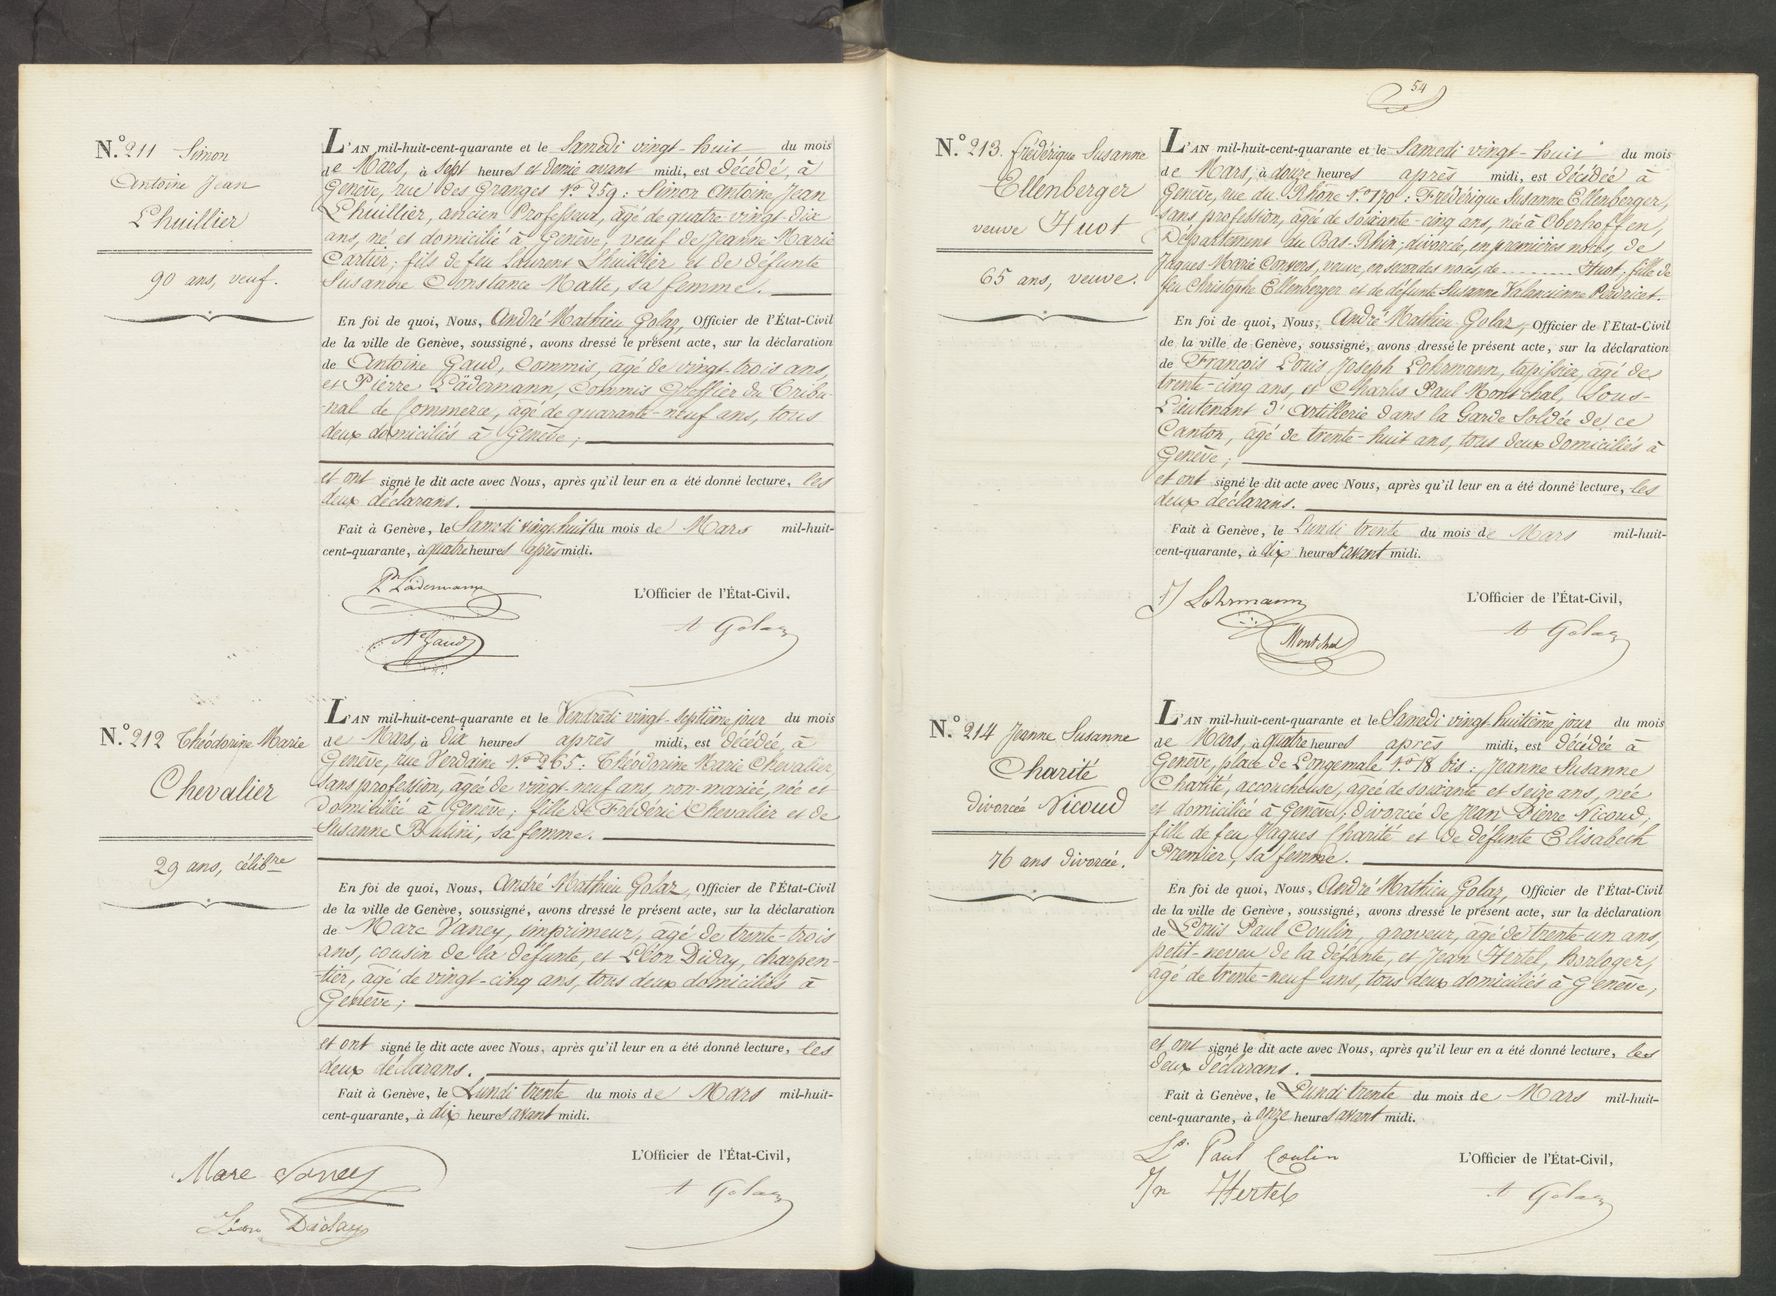 N.º 211 Simon
Antoine Jean
Lhuillier
90 ans, veuf.
L'AN mil-huit-cent-quarante et le Samedi vingt-huit du mois
de Mars, à sept heures et demie avant midi, est décédé, à
Genève, rue des Granges Nº 259: Simon Antoine Jean
Lhuillier, ancien Professeur, âgé de quatre vingt-dix
ans, né et domicilié à Genève, veuf de Jeanne Marie
Cartier; fils de feu Laurent Lhuillier et de défunte
Susanne Constance Matte, sa femme.
En foi de quoi, Nous, André Mathieu Golaz, Officier de l'État-Civil
de la ville de Genève, soussigné, avons dressé le présent acte, sur la déclaration
de Antoine Gaud, Commis, âgé de vingt-trois ans,
et Pierre Lädermann, Commis Greffier du Tribu-
-nal de Commerce, âgé de quarante-neuf ans, tous
deux domiciliés à Genève;
et ont signé le dit acte avec Nous, après qu'il leur en a été donné lecture, les
deux déclarans.
Fait à Genève, le Samedi vingt huit du mois de Mars mil-huit-
cent-quarante, à quatre heures après midi.
L'Officier de l'État-Civil,
Pre Lädermann
A Golaz
Ne Gaud
N.º 212 Théodorine Marie
Chevalier
29 ans, célibre
L'AN mil-huit-cent-quarante et le Vendredi vingt-septième jour du mois
de Mars, à dix heures après midi, est décédée, à
Genève, rue Verdaine Nº 265: Théodorine Marie Chevalier,
sans profession, âgée de vingt-neuf ans, non-mariée, née et
domiciliée à Genève; fille de Fréderic Chevalier et de
Susanne Bulini, sa femme.
En foi de quoi, Nous, André Mathieu Golaz, Officier de l'État-Civil
de la ville de Genève, soussigné, avons dressé le présent acte, sur la déclaration
de Marc Vaney, imprimeur, âgé de trente-trois
ans, cousin de la défunte, et Léon Diday, charpen-
-tier, âgé de vingt-cinq ans, tous deux domiciliés à
Genève;
et ont signé le dit acte avec Nous, après qu'il leur en a été donné lecture, les
deux déclarans.
Fait à Genève, le Lundi trente du mois de Mars mil-huit-
cent-quarante, à dix heures avant midi.
L'Officier de l'État-Civil,
Marc Vaney
A Golaz
Léon Diday
54
N.º 213. Frédérique Susanne
Ellenberger
veuve Huot
65 ans, veuve.
L'AN mil-huit-cent-quarante et le Samedi vingt-huit du mois
de Mars, à douze heures après midi, est décédée à
Genève, rue du Rhône Nº 170: Frédérique Susanne Ellenberger,
sans profession, âgée de soixante-cinq ans, née à Oberhoffen,
Département du Bas-Rhin; divorcée, en premières noces, de
Jaques Marie Convers, veuve, en secondes noces, de ......... Huot; fille de
feu Christophe Ellenberger et de défunte Susanne Valencienne Perdricet.
En foi de quoi, Nous, André Mathieu Golaz, Officier de l'Etat-Civil
de la ville de Genève, soussigné, avons dressé le présent acte, sur la déclaration
de François Louis Joseph Lohrmann, tapissier, âgé de
trente-cinq ans, et Charles Paul Montchal, Sous-
Lieutenant d'Artillerie dans la Garde Soldée de ce
Canton, âgé de trente-huit ans, tous deux domiciliés à
Genève;
et ont signé le dit acte avec Nous, après qu'il leur en a été donné lecture, les
deux déclarans.
Fait à Genève, le Lundi trente du mois de Mars mil-huit-
cent-quarante, à dix heures avant midi.
L'Officier de l'État-Civil,
Lohrmann
A Golaz
Montchal
N.º 214 Jeanne Susanne
Charité
divorcée Nicoud
76 ans divorcée.
L'AN mil-huit-cent-quarante et le Samedi vingt huitième jour du mois
de Mars, à quatre heures après midi, est décédée à
Genève, place de Longemale Nº 18 bis: Jeanne Susanne
Charité, accoucheuse, âgée de soixante et seize ans, née
et domiciliée à Genève, divorcée de Jean Pierre Nicoud,
fille de feu Jaques Charité et de défunte Elisabeth
Premier, sa femme.
En foi de quoi, Nous, André Mathieu Golaz, Officier de l'État-Civil
de la ville de Genève, soussigné, avons dressé le présent acte, sur la déclaration
de Louis Paul Coulin, graveur, âgé de trente-un ans,
petit-neveu de la défunte, et Jean Hertel, horloger,
âgé de trente-neuf ans, tous deux domiciliés à Genève;
et ont signé le dit acte avec Nous, après qu'il leur en a été donné lecture, les
deux déclarans.
Fait à Genève, le Lundi trente du mois de Mars mil-huit-
cent-quarante, à onze heures avant midi.
L'Officier de l'État-Civil,
Ls. Paul Coulin
Jn Hertel
A Golaz